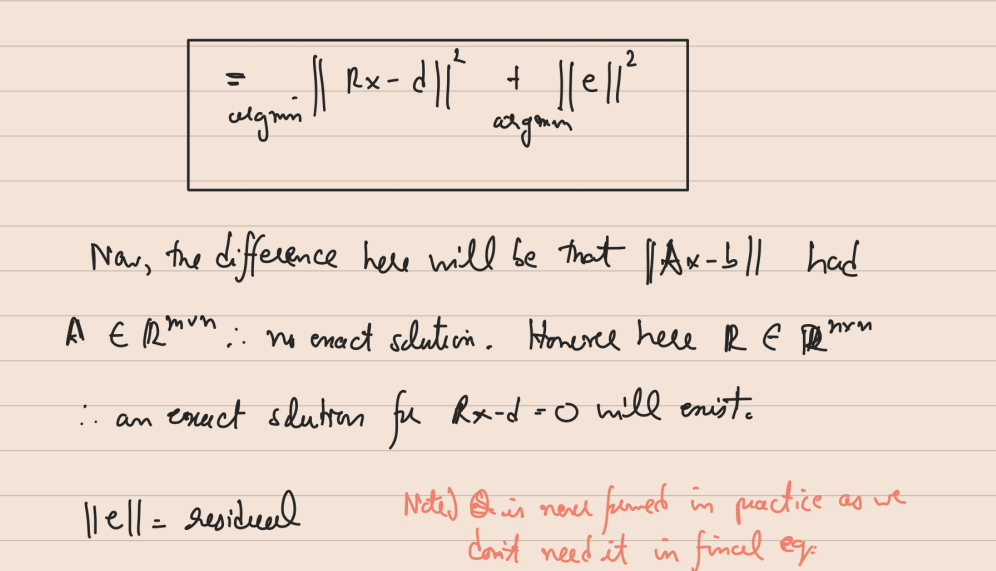 = argmin || Rx - d ||² + argmin || e ||²
Now, the difference here will be that || Ax - b || had
A ∈ ℝ^{m×n} ∴ no exact solution. However here R ∈ ℝ^{n×n}
∴ an exact solution for Rx - d = 0 will exist.
|| e || = residual
Note) Q is never formed in practice as we
don't need it in final eq.